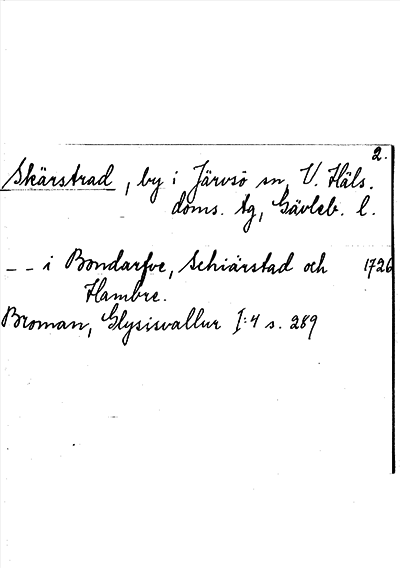 2.
Skärstrad, by i Järvsö sn, V. Häls.
doms. tg, Gävleb. l.
_ _ i Bondarfve, Schiärstad och 1726
Hambre.
Broman, Glysisvallur I:4 s. 289